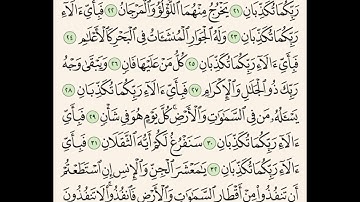 رَبِّكُمَا تُكَذِّبَانِ ٢١ يَخْرُجُ مِنْهُمَا ٱللُّؤْلُؤُ وَٱلْمَرْجَانُ ٢٢ فَبِأَىِّ ءَالَآءِ
رَبِّكُمَا تُكَذِّبَانِ ٢٣ وَلَهُ ٱلْجَوَارِ ٱلْمُنشَـَٔاتُ فِى ٱلْبَحْرِ كَٱلْأَعْلَـٰمِ ٢٤
فَبِأَىِّ ءَالَآءِ رَبِّكُمَا تُكَذِّبَانِ ٢٥ كُلُّ مَنْ عَلَيْهَا فَانٍ ٢٦ وَيَبْقَىٰ وَجْهُ
رَبِّكَ ذُو ٱلْجَلَـٰلِ وَٱلْإِكْرَامِ ٢٧ فَبِأَىِّ ءَالَآءِ رَبِّكُمَا تُكَذِّبَانِ ٢٨
يَسْـَٔلُهُۥ مَن فِى ٱلسَّمَـٰوَٰتِ وَٱلْأَرْضِ ۚ كُلَّ يَوْمٍ هُوَ فِى شَأْنٍ ٢٩ فَبِأَىِّ
ءَالَآءِ رَبِّكُمَا تُكَذِّبَانِ ٣٠ سَنَفْرُغُ لَكُمْ أَيُّهَ ٱلثَّقَلَانِ ٣١ فَبِأَىِّ
ءَالَآءِ رَبِّكُمَا تُكَذِّبَانِ ٣٢ يَـٰمَعْشَرَ ٱلْجِنِّ وَٱلْإِنسِ إِنِ ٱسْتَطَعْتُمْ
أَن تَنفُذُوا۟ مِنْ أَقْطَارِ ٱلسَّمَـٰوَٰتِ وَٱلْأَرْضِ فَٱنفُذُوا۟ ۚ لَا تَنفُذُونَ